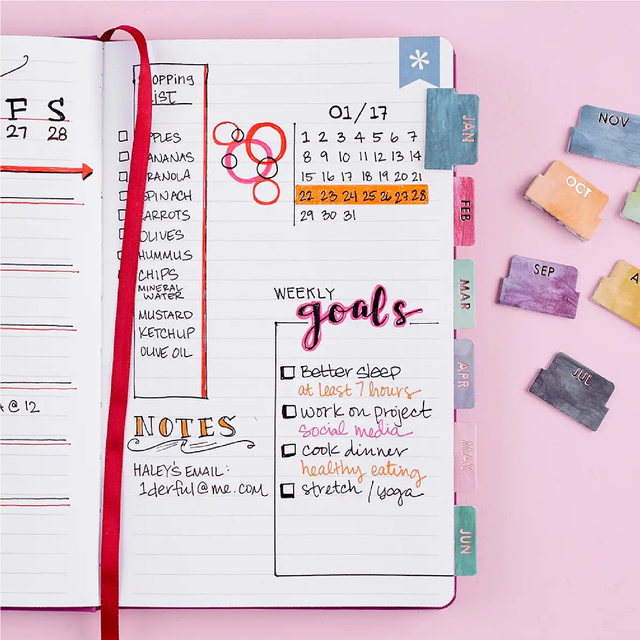 F S
27 28
@ 12
LIST
OLIVES
CHIPS
MINERAL
WATER
MUSTARD
KETCHUP
OLIVE OIL
NOTES
HALEY'S EMAIL:
1derful@me.com
01/17
1 2 3 4 5 6 7
8 9 10 11 12 13 14
15 16 17 18 19 20 21
22 23 24 25 26 27 28
29 30 31
WEEKLY
goals
Better sleep
at least 7 hours
work on project
social media
cook dinner
healthy eating
stretch / yoga
JAN
FEB
MAR
APR
MAY
JUN
NOV
OCT
SEP
JUL